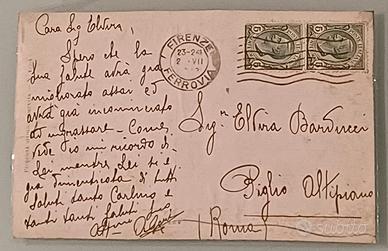 Cara Sig Elvira,
Spero che la
sua salute avrà già
migliorato assai ed
avrà già incominciato
ad ingrassare - Come
vede io mi ricordo di
lei mentre lei si è
già dimenticata di tutti
saluti tanto Carlino e
tanti tanti saluti
FIRENZE
23-24
VII
FERROVIA
Sig.na Elvira Barducci
Piglio Altipiano
(Roma)
subito